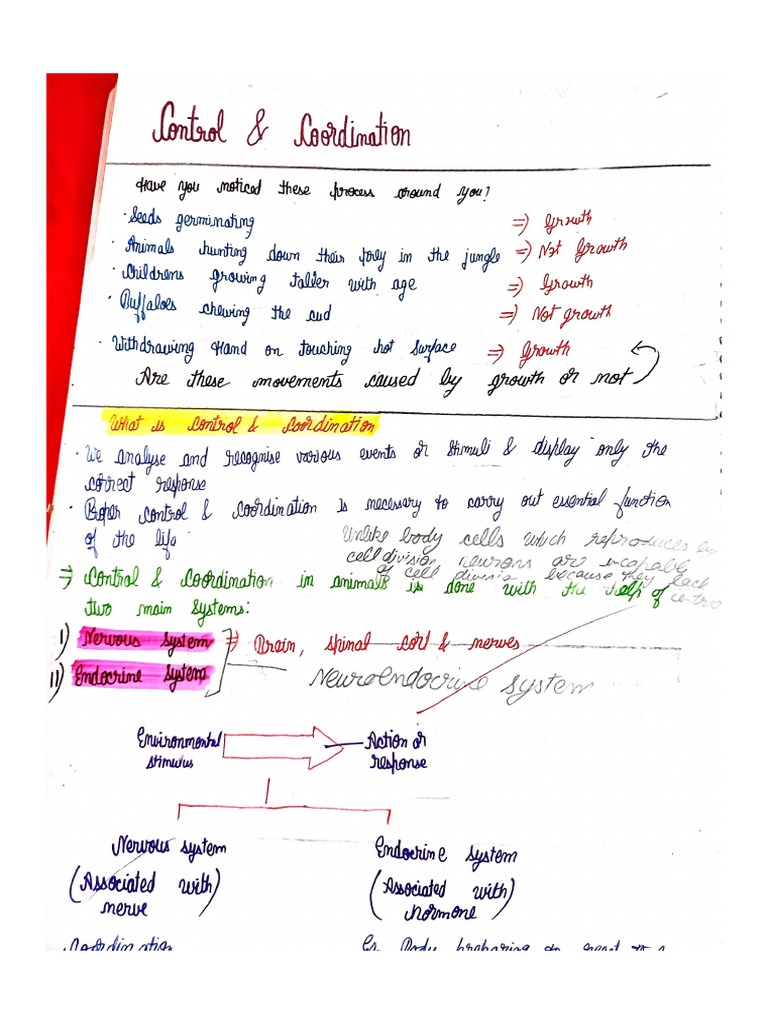 Control & Coordination
Have you noticed these process around you?
· Seeds germinating ⇒ Growth
· Animals hunting down their prey in the jungle ⇒ Not Growth
· Childrens growing taller with age ⇒ Growth
· Buffaloes chewing the cud ⇒ Not growth
· Withdrawing Hand on touching hot surface ⇒ Growth
Are these movements caused by growth or not
What is control & coordination
· We analyse and recognise various events or stimuli & display only the
correct response
· Proper control & coordination is necessary to carry out essential function
of the life
Unlike body cells which reproduces by
cell division neurons are incapable
of cell division because they lack
centro
⇒ Control & Coordination in animals is done with the help of
two main systems:
I) Nervous System ⇒ Brain, spinal cord & nerves
II) Endocrine System
NeuroEndocrine System
Environmental
stimulus
Action or
response
Nervous system
(Associated with)
nerve
Endocrine system
(Associated with)
Hormone
Coordination